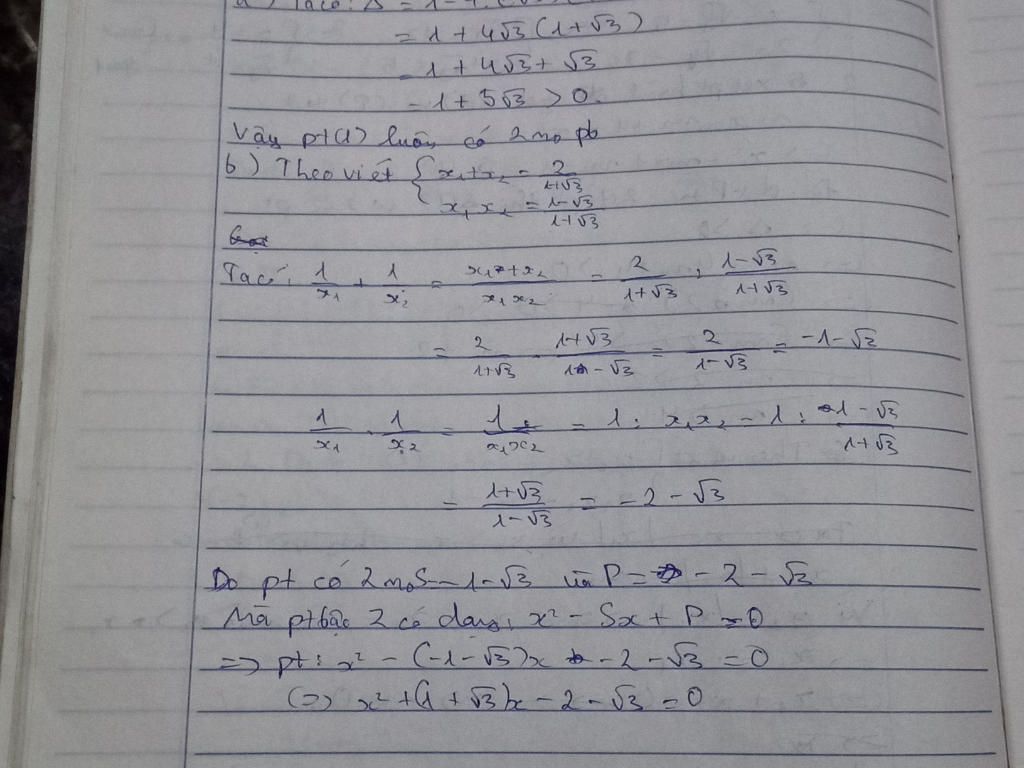 a) Ta có: Δ = 1 - 4.
= 1 + 4√3 (1+√3)
= 1 + 4√3 + √3
= 1 + 5√3 > 0.
Vậy pt(1) luôn có 2 no pb
b) Theo viét { x₁+x₂ = 2/(1+√3)
x₁ x₂ = (1-√3)/(1+√3)
Ta có: 1/x₁ + 1/x₂ = (x₁+x₂)/(x₁x₂) = 2/(1+√3) : (1-√3)/(1+√3)
= 2/(1+√3) . (1+√3)/(1-√3) = 2/(1-√3) = -1-√3
1/x₁ . 1/x₂ = 1/(x₁x₂) = 1 : x₁x₂ = 1 : (1-√3)/(1+√3)
= (1+√3)/(1-√3) = -2-√3
Do pt có 2 no S = -1-√3 và P = -2-√3
Mà pt bậc 2 có dạng: x² - Sx + P = 0
=> pt: x² - (-1-√3)x -2-√3 = 0
(=) x² + (1+√3)x -2-√3 = 0